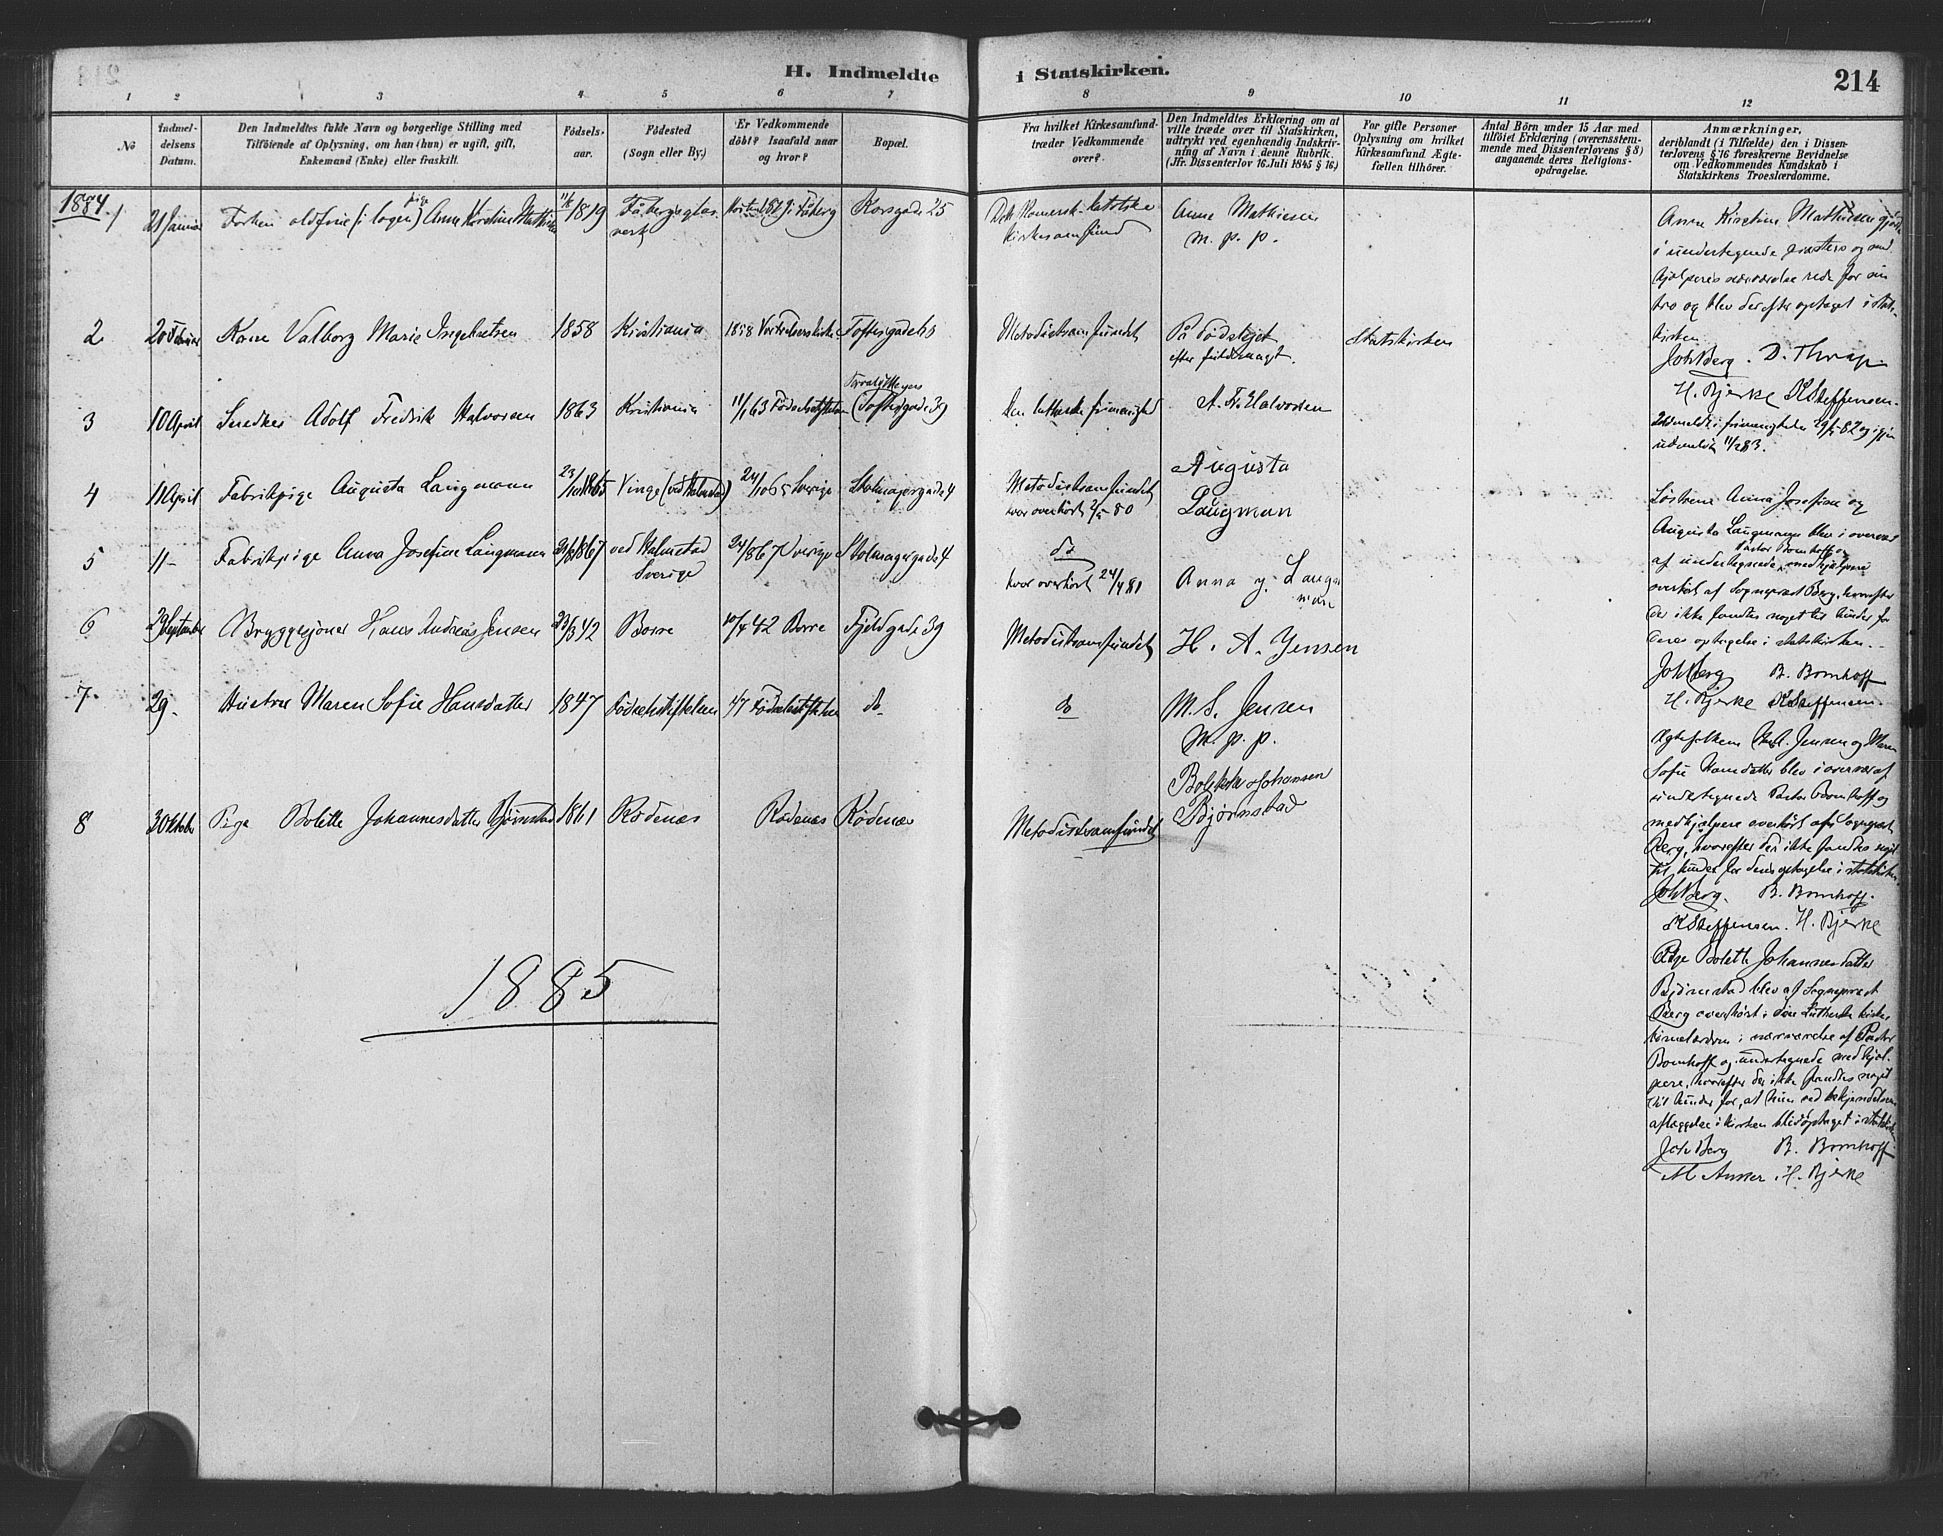 H. Indmeldte i Statskirken.
214
1 2 3 4 5 6 7 8 9 10 11 12
No
Indmel-
delsens
Datum.
Den Indmeldtes fulde Navn og borgerlige Stilling med
Tilføiende af Oplysning, om han (hun) er ugift, gift,
Enkemand (Enke) eller fraskilt.
Fødsels-
aar.
Fødested
(Sogn eller By.)
Er Vedkommende
döbt? Isaafald naar
og hvor?
Bopæl.
Fra hvilket Kirkesamfund
træder Vedkommende
over?
Den Indmeldtes Erklæring om at
ville træde over til Statskirken,
udtrykt ved egenhændig Indskriv-
ning af Navn i denne Rubrik.
(Jfr. Dissenterlov 16. Juli 1845 § 16.)
For gifte Personer
Oplysning om hvilket
Kirkesamfund Ægte-
fællen tilhörer.
Antal Börn under 15 Aar med
tilföiet Erklæring (overensstem-
mende med Dissenterlovens § 8)
angaaende deres Religions-
opdragelse.
Anmærkninger,
deriblandt (i Tilfælde) den i Dissen-
terlovens § 16 foreskrevne Bevidnelse
om Vedkommendes Kundskab i
Statskirkens Troeslærdomme.
1884.
1 21 Januar (i loge) Anne Kirstine 11/6 1819 Korsgade 25
Den Romersk-katolske
kirkesamfund
Anne Mathiesen
m. p. p.
2 20 Februar Kone Valborg Marie Ingebretsen 1858 Kristiania 1858 Vor Frelsers kirke Toftesgade
Metodistsamfundet
På dødslejet
efter fuldmagt.
Statskirken
3 10 April Snedker Adolf Fredrik Halvorsen 1863 Kristiania 11/1 63 Fødselsstiftelsen
Toftesgade 39
Den lutherske frimenighed
A. Fr. Halvorsen
4 11 April Fabrikpige Augusta Laugmann 23/10 1865 Vinge (ved Halmstad) 24/10 65 Sverige Stolmagergade 4
Metodistsamfundet
hvor overhørt
Augusta
Laugman
5 11- Fabrikpige Anna Josefine Laugmann 1867 ved Halmstad 24/8 67 Sverige Stolmagergade 4
Sverige
do
hvor overhørt 24/4 81
Anna J. Laug
man
6 29 September Bryggesjouer Hans Andreas Jensen 23/3 42 Borre 10/4 42 Borre Fjeldgade 39
Metodistsamfundet
H. A. Jensen
7 29. Hustru Maren Sofie Hansdatter 1847 Fødselsstiftelsen 47 Fødselsstiftelsen do.
do
M. S. Jensen
m. p. p.
8 3 Oktober Pige Bolette Johannesdatter Bjørnstad 1861 Rødenæs Rødenæs Rødenæs
Metodistsamfundet
Bolette Johansen
Bjørnstad
1885
Anne Kirstine Mathiesen gjorde
i undertegnede præsters og med-
hjælperes nærværelse rede for sin
tro og blev derefter optaget i stats-
kirken.
Joh Berg. D. Thrap
H. Bjerke K Steffensen.
Indmeldt i frimenigheden 82 og igjen
udmeldt 83.
Søstrene Anna Josefine og
Augusta Laugmann blev i overvær
Pastor Bomhoff og
af undertegnede medhjælpere
overhørt af Sognepræst Berg, hvorefter
der ikke fandtes noget til hinder for
deres optagelse i statskirken.
Joh Berg B. Bomhoff
H. Bjerke K Steffensen.
Ægtefolkene H. A. Jensen og Maren
Sofie Hansdatter blev i overvær af
undertegnede Pastor Bomhoff og
medhjælpere overhørt af Sognepræst
Berg, hvorefter der ikke fandtes noget
til hinder for deres optagelse i statskirken.
Joh Berg. B. Bomhoff.
K Steffensen. H. Bjerke
Pige Bolette Johannesdatter
Bjørnstad blev af Sognepræst
Berg overhørt i den Lutherske kirkes
børnelærdom i nærværelse af Pastor
Bomhoff og undertegnede medhjæl-
pere, hvorefter der ikke fandtes noget
til hinder for, at hun ved bekjendelses
aflæggelse i kirken blev optaget i statskirken
Joh Berg B. Bomhoff
H. Bjerke